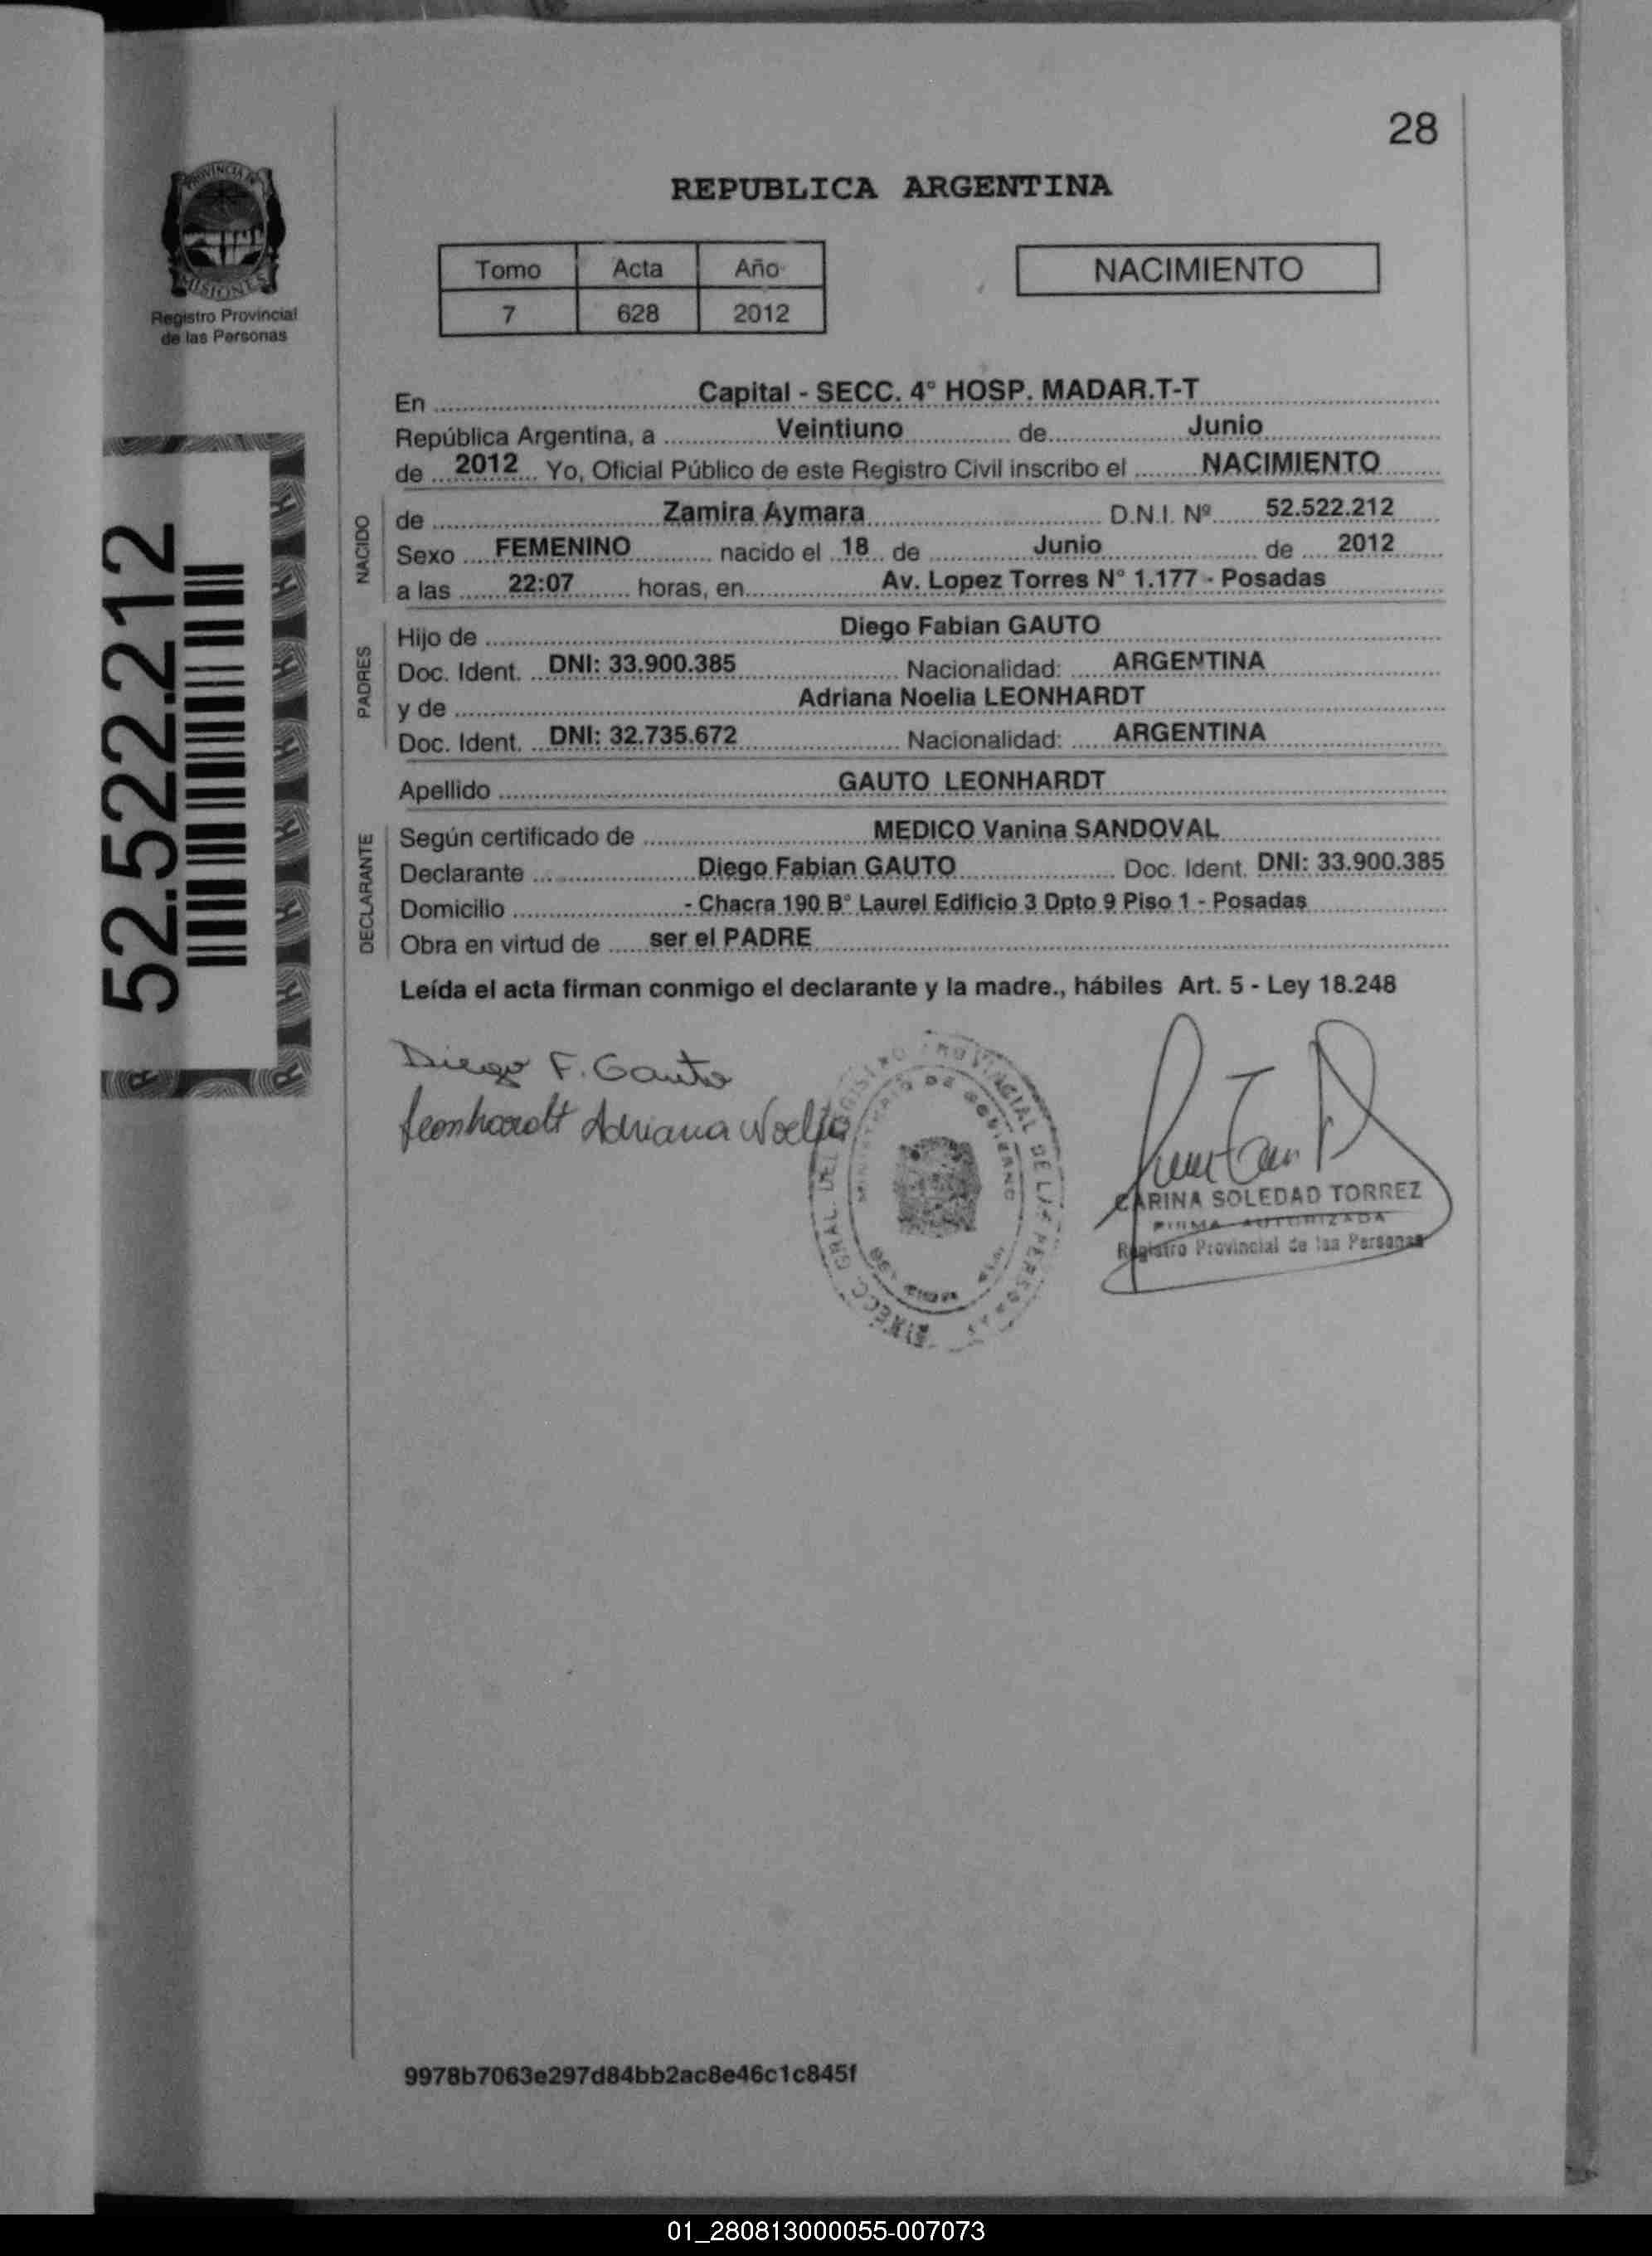 28
PROVINCIA DE
MISIONES
Registro Provincial
de las Personas
REPUBLICA ARGENTINA
Tomo Acta Año
7 628 2012
NACIMIENTO
En Capital - SECC. 4° HOSP. MADAR.T-T
República Argentina, a Veintiuno de Junio
de 2012 Yo, Oficial Público de este Registro Civil inscribo el NACIMIENTO
NACIDO
de Zamira Aymara D.N.I. Nº 52.522.212
Sexo FEMENINO nacido el 18 de Junio de 2012
a las 22:07 horas, en Av. Lopez Torres N° 1.177 - Posadas
PADRES
Hijo de Diego Fabian GAUTO
Doc. Ident. DNI: 33.900.385 Nacionalidad: ARGENTINA
y de Adriana Noelia LEONHARDT
Doc. Ident. DNI: 32.735.672 Nacionalidad: ARGENTINA
Apellido GAUTO LEONHARDT
DECLARANTE
Según certificado de MEDICO Vanina SANDOVAL
Declarante Diego Fabian GAUTO Doc. Ident. DNI: 33.900.385
Domicilio - Chacra 190 B° Laurel Edificio 3 Dpto 9 Piso 1 - Posadas
Obra en virtud de ser el PADRE
Leída el acta firman conmigo el declarante y la madre., hábiles Art. 5 - Ley 18.248
52.522.212
Diego F. Gauto
Leonhardt Adriana Noelia
DIRECC. GRAL. DEL REGISTRO PROVINCIAL DE LAS PERSONAS
MINISTERIO DE GOBIERNO
CARINA SOLEDAD TORREZ
FIRMA AUTORIZADA
Registro Provincial de las Personas
9978b7063e297d84bb2ac8e46c1c845f
01_280813000055-007073